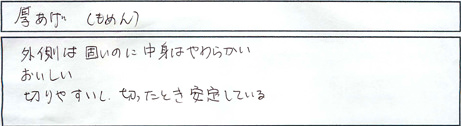 厚あげ （もめん）
外側は固いのに中身はやわらかい
おいしい
切りやすいし、切ったとき安定している